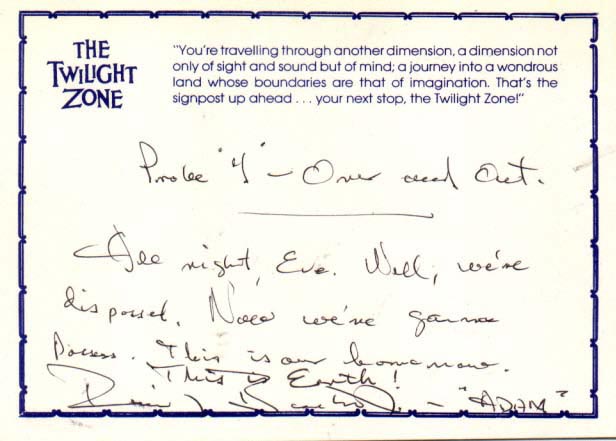 THE
TWILIGHT
ZONE
"You're travelling through another dimension, a dimension not
only of sight and sound but of mind; a journey into a wondrous
land whose boundaries are that of imagination. That's the
signpost up ahead . . . your next stop, the Twilight Zone!"
Probe "7" – Over and Out.
All right, Eve. Well, we're
dispossed. Now we're gonna
Possess. This is our home now.
This is Earth!
– "ADAM"